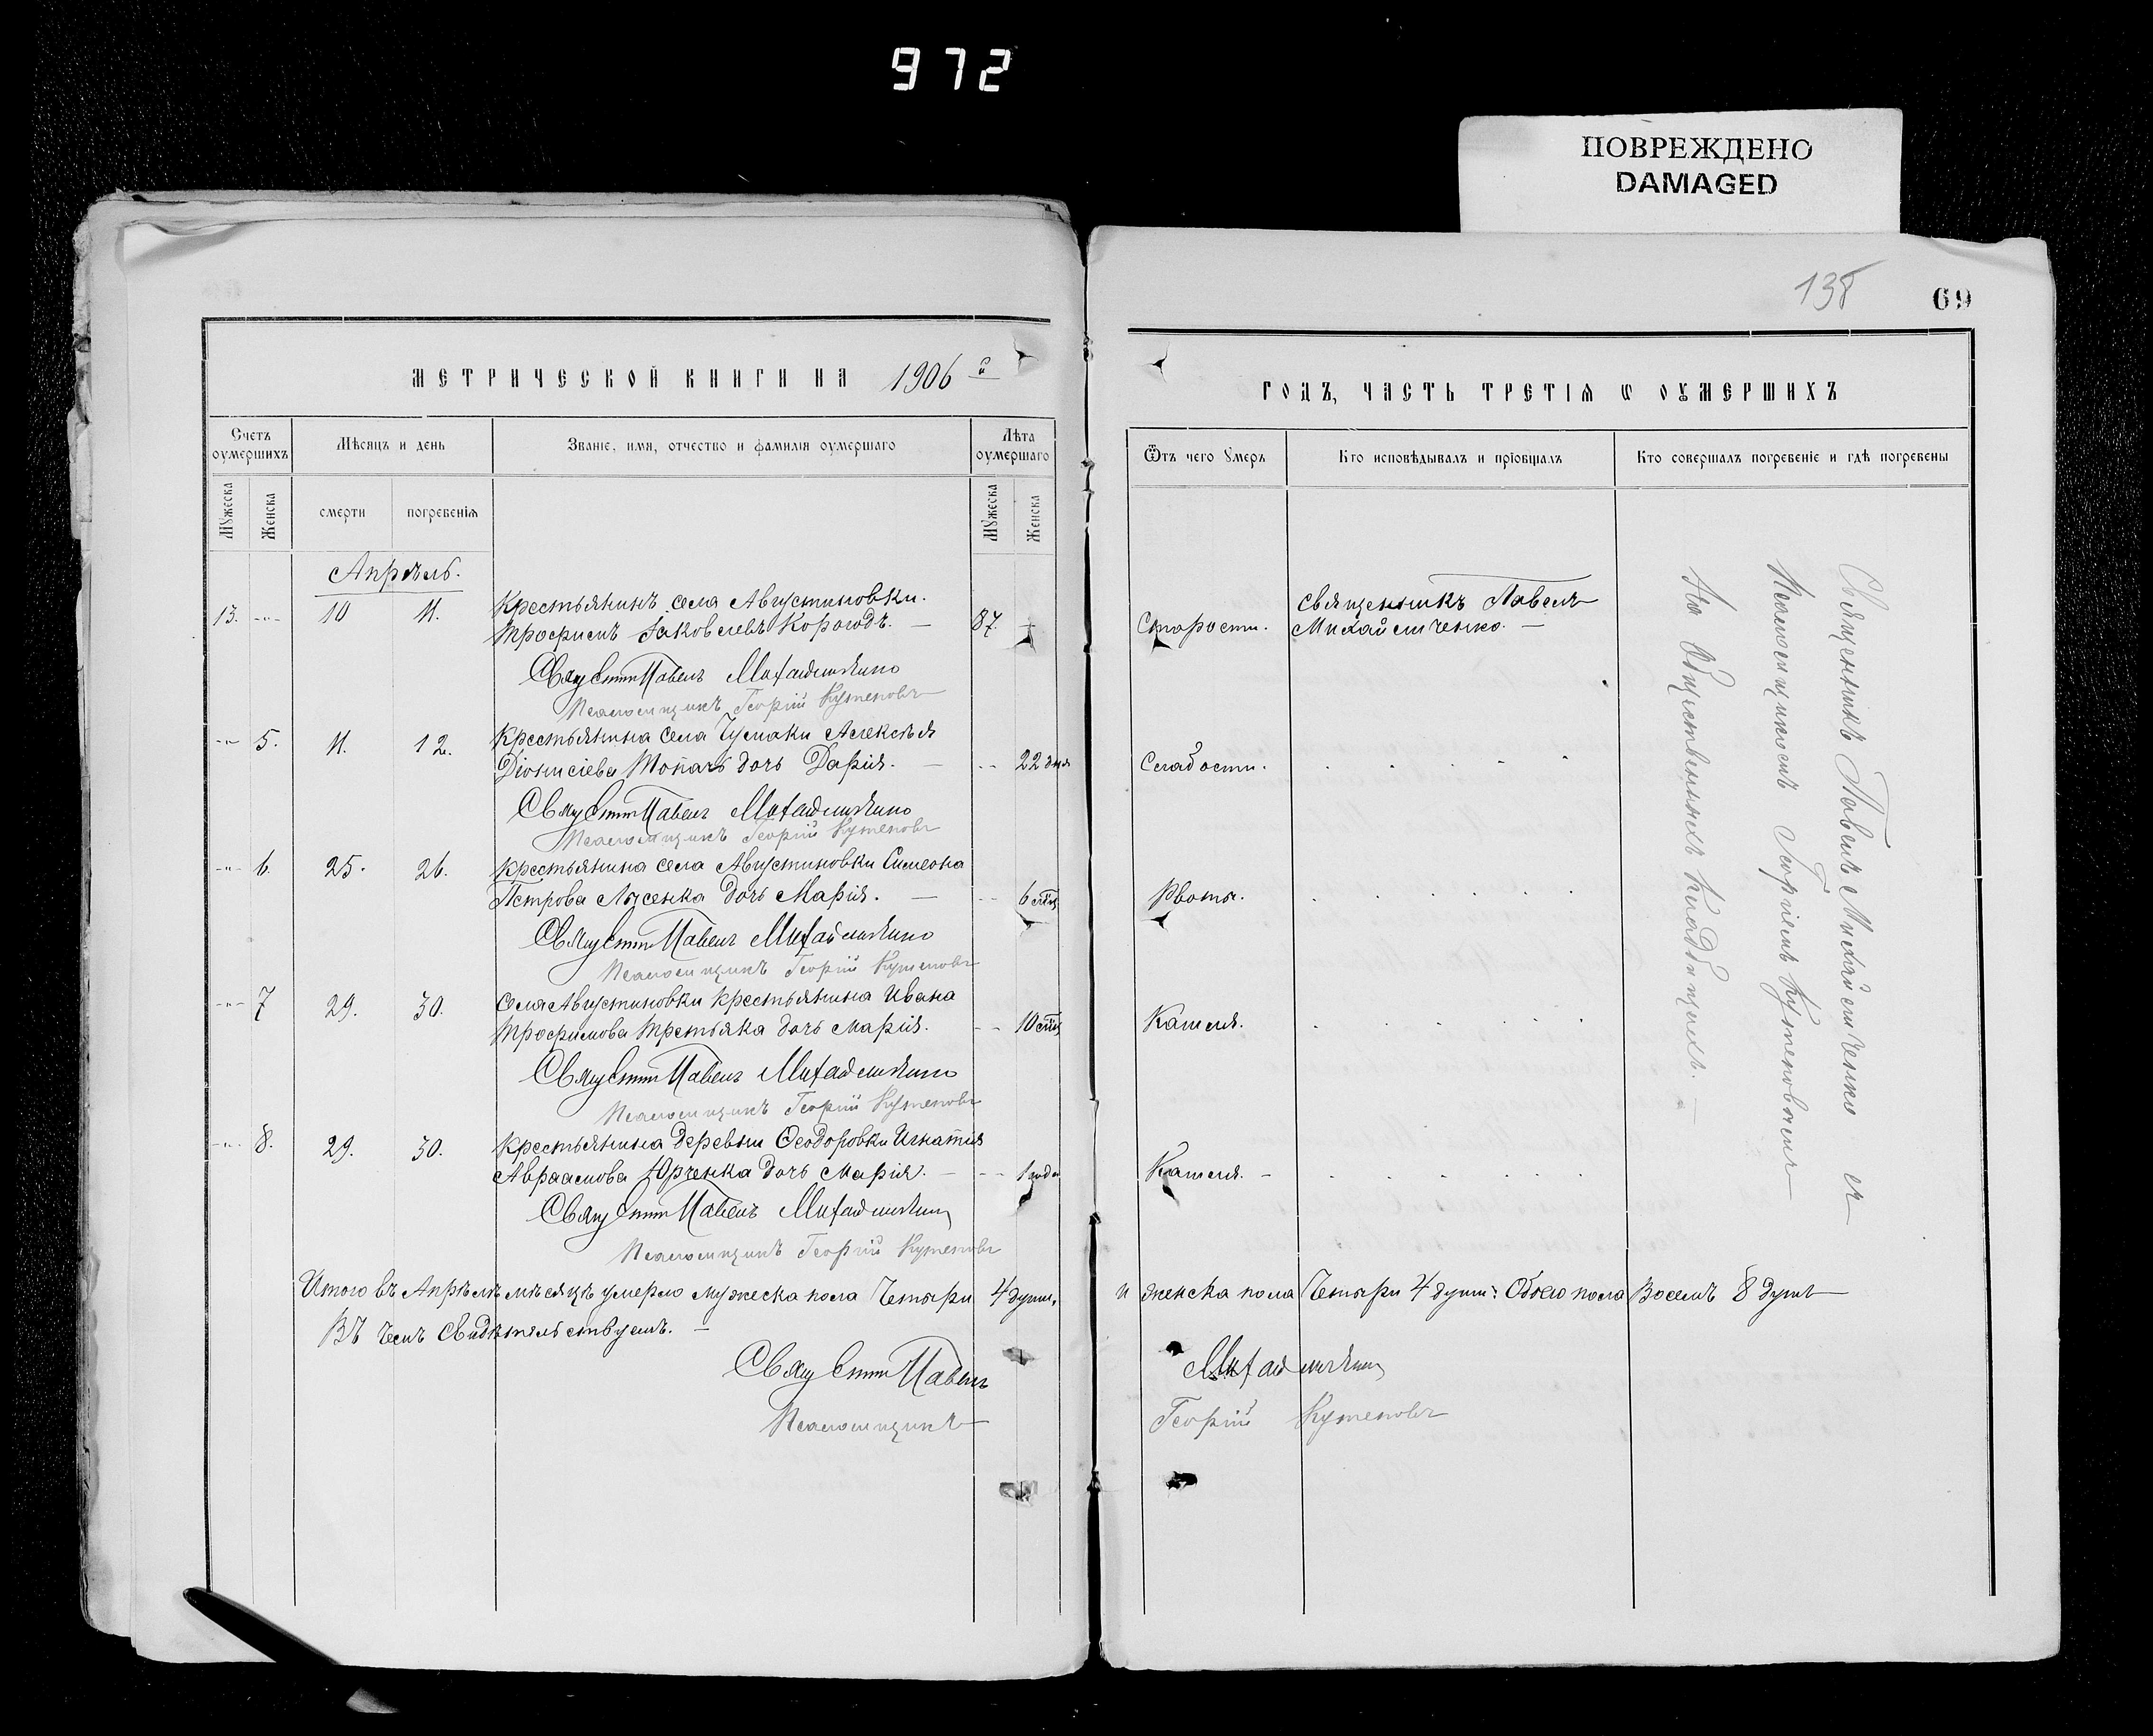 972
ПОВРЕЖДЕНО
DAMAGED
138
69
МЕТРИЧЕСКОЙ КНИГИ НА 1906 й
ГОДЪ, ЧАСТЬ ТРЕТІЯ Ѡ ОУМЕРШИХЪ
Счетъ оумершихъ
Мѣсяцъ и день
Званіе, имя, отчество и фамилія оумершаго
Лѣта оумершаго
Ѿтъ чего Умеръ
Кто исповѣдывалъ и пріобщалъ
Кто совершалъ погребеніе и гдѣ погребены
Мужеска
Женска
смерти
погребенія
Мужеска
Женска
Апрѣль.
13. -"- 10 11. Крестьянинъ села Августиновки.
Трофимъ Іаковлевъ Корогодъ. — 87. — Старости. Священникъ Павелъ
Михайличенко. —
Свящ Павелъ Михайличенко
Псаломщикъ Георгій Кутеповъ
-"- 5. 11. 12. Крестьянина села Чумаки Алексѣя
Діонисіева Топалъ дочь Дарія. — -- 22 дня Слабости.
Свящ Павелъ Михайличенко
Псаломщикъ Георгій Кутеповъ
-"- 6. 25. 26. Крестьянина села Августиновки Симеона
Петрова Лысенка дочь Марія. — -- 6 Рвоты.
Свящ Павелъ Михайличенко
Псаломщикъ Георгій Кутеповъ
-"- 7 29. 30. Села Августиновки крестьянина Ивана
Трофимова Третьяка дочь Марія. -- 10 Кашля.
Свящ Павелъ Михайличенко
Псаломщикъ Георгій Кутеповъ
-"- 8. 29. 30. Крестьянина деревни Ѳеодоровки Игнатія
Авраамова Юрченка дочь Марія. — -- 1 года Кашля. -
Свящ Павелъ Михайличенко
Псаломщикъ Георгій Кутеповъ
Священникъ Павелъ Михайличенко съ
Псаломщикомъ Георгіемъ Кутеповымъ
На Общественныхъ Кладбищахъ. —
Итого въ Апрѣлѣ мѣсяцѣ умерло мужеска пола Четыри 4 души, и женска пола Четыри 4 души: Обоего пола Восемъ 8 душъ
Въ чемъ Свидѣтельствуемъ. —
Свящ Павелъ Михайличенко
Псаломщикъ Георгій Кутеповъ